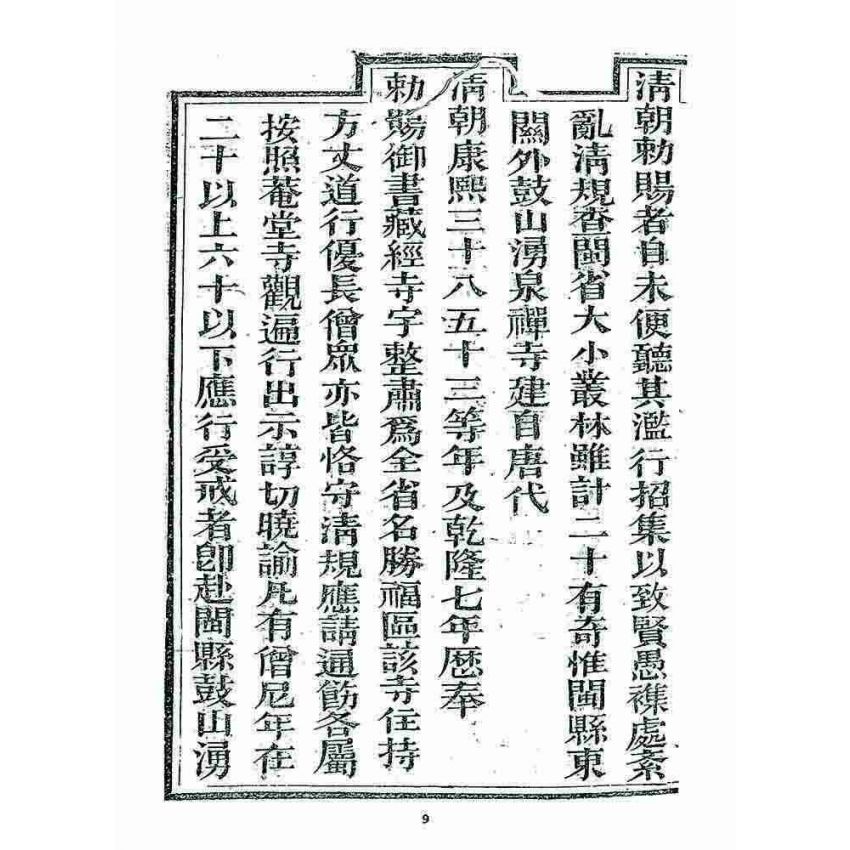 清朝勅賜者自未便聽其濫行招集以致賢愚襍處紊
亂清規查閩省大小叢林雖計二十有奇惟閩縣東
關外鼓山湧泉禪寺建自唐代
清朝康熙三十八五十三等年及乾隆七年歷奉
勅賜御書藏經寺宇整肅爲全省名勝福區該寺住持
方丈道行優長僧眾亦皆恪守清規應請通飭各屬
按照菴堂寺觀遍行出示諄切曉諭凡有僧尼年在
二十以上六十以下應行受戒者卽赴閩縣鼓山湧
9